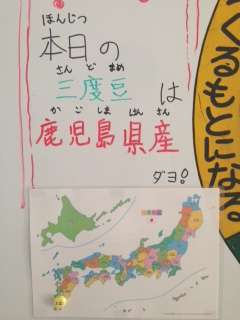 ほんじつ
本日の
さんどまめ
三度豆は
かごしまけんさん
鹿児島県産
ダヨ!
てくるもとになる